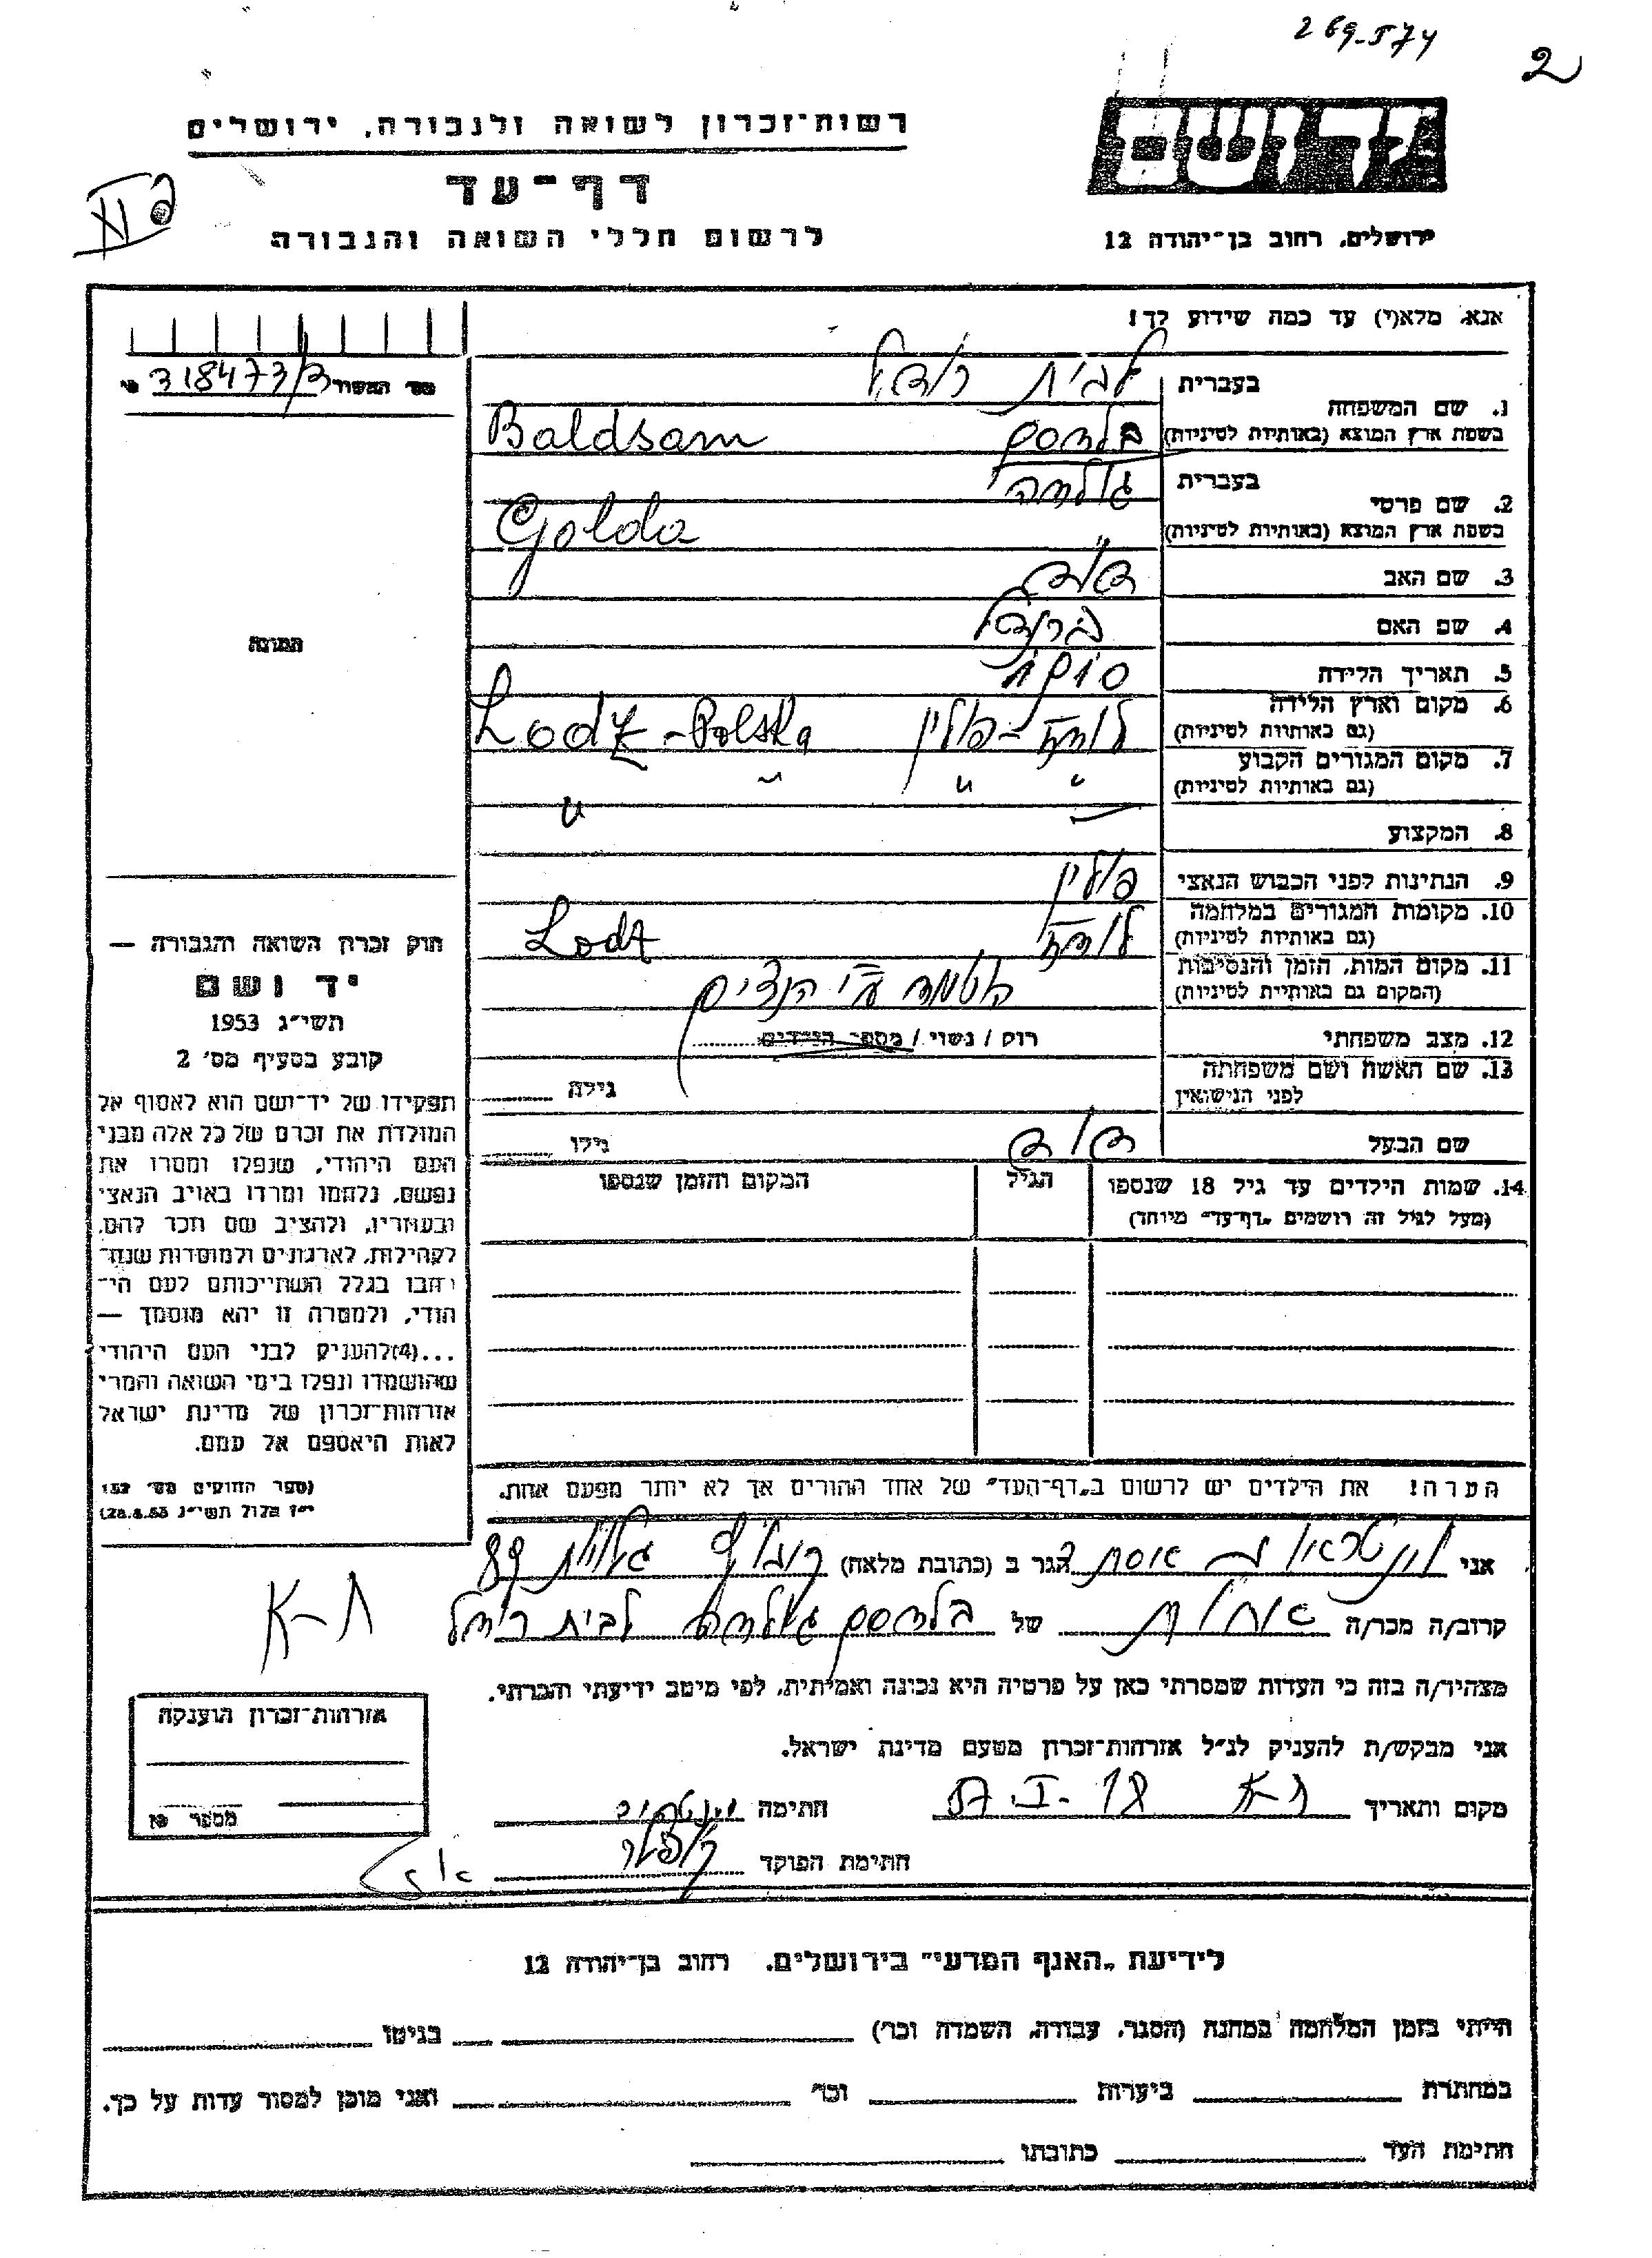 269-574
2
רשות-זכרון לשואה ולגבורה, ירושלים
יד ושם
דף-עד
לרשום חללי השואה והגבורה
ירושלים, רחוב בן-יהודה 12
אנא, מלא(י) עד כמה שידוע לך!
מס' המשור 318473/3
בעברית
לבית
1. שם המשפחה
בשפת ארץ המוצא (באותיות לטיניות)
בלדסם Baldsam
בעברית
גולדה
2. שם פרטי
בשפת ארץ המוצא (באותיות לטיניות)
Golda
3. שם האב דוד
4. שם האם
5. תאריך הלידה
6. מקום וארץ הלידה
(גם באותיות לטיניות)
לודז - פולין Lodz - Polska
7. מקום המגורים הקבוע
(גם באותיות לטיניות)
" " " "
8. המקצוע
9. הנתינות לפני הכבוש הנאצי פולין
10. מקומות המגורים במלחמה
(גם באותיות לטיניות)
לודז Lodz
11. מקום המות, הזמן והנסיבות
(המקום גם באותיות לטיניות)
הושמדה ע"י הנצים
12. מצב משפחתי רוק / נשוי / מספר הילדים
13. שם האשה ושם משפחתה
לפני הנישואין
גילה
שם הבעל דוד גילו
14. שמות הילדים עד גיל 18 שנספו הגיל המקום והזמן שנספו
(מעל לגיל זה רושמים "דף-עד" מיוחד)
התמונה
חוק זכרון השואה והגבורה —
יד ושם
תשי"ג 1953
קובע בסעיף מס' 2
תפקידו של יד-ושם הוא לאסוף אל
המולדת את זכרם של כל אלה מבני
העם היהודי, שנפלו ומסרו את
נפשם, נלחמו ומרדו באויב הנאצי
ובעוזריו, ולהציב שם וזכר להם,
לקהילות, לארגונים ולמוסדות שנח-
רבו בגלל השתייכותם לעם הי-
הודי, ולמטרה זו יהא מוסמך —
...(4)להעניק לבני העם היהודי
שהושמדו ונפלו בימי השואה והמרי
אזרחות-זכרון של מדינת ישראל
לאות היאספם אל עמם.
(ספר החוקים מס' 132
י"ז אלול תשי"ג 28.8.53)
הערה! את הילדים יש לרשום ב"דף-העד" של אחד ההורים אך לא יותר מפעם אחת.
אני אסתר הגר ב (כתובת מלאה) 89
קרוב/ה מכר/ה אחות של בלדסם גולדה לבית
מצהיר/ה בזה כי העדות שמסרתי כאן על פרטיה היא נכונה ואמיתית, לפי מיטב ידיעתי והכרתי.
אני מבקש/ת להעניק לנ"ל אזרחות-זכרון מטעם מדינת ישראל.
ת-א
מקום ותאריך ת-א 18-I-57 חתימה
חתימת הפוקד
אזרחות-זכרון הוענקה
מספר
לידיעת "האגף המדעי" בירושלים, רחוב בן-יהודה 12
הייתי בזמן המלחמה במחנה (הסגר, עבודה, השמדה וכו') בגיטו
במחתרת ביערות וכו' ואני מוכן למסור עדות על כך.
חתימת העד כתובתו